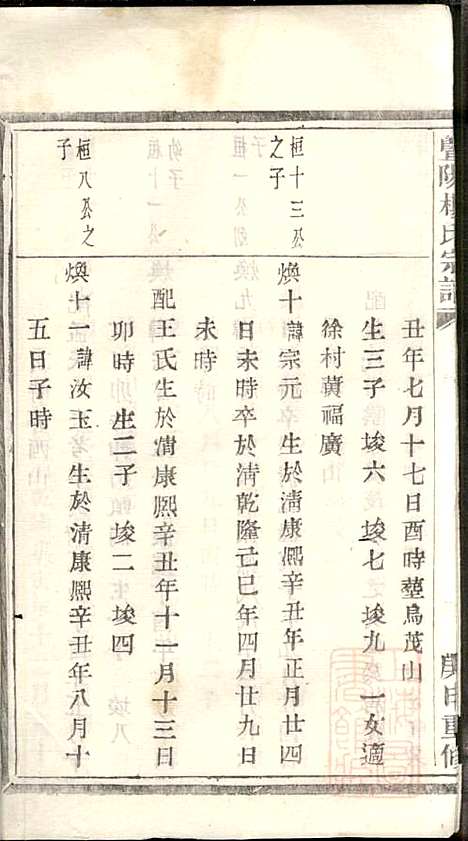 暨陽楊氏宗譜
庚申重修
丑年七月十七日酉時塟鳥茂山
生三子 埈六 埈七 埈九 一女適
徐村黃福廣
桓十三公
之子
煥十諱宗元 生於淸康熈辛丑年正月廿四
日未時卒於淸乾隆己巳年四月廿九日
未時
配王氏生於淸康熈辛丑年十一月十三日
卯時 生二子 埈二 埈四
桓八公之
子
煥十一諱汝玉 生於淸康熈辛丑年八月十
五日子時